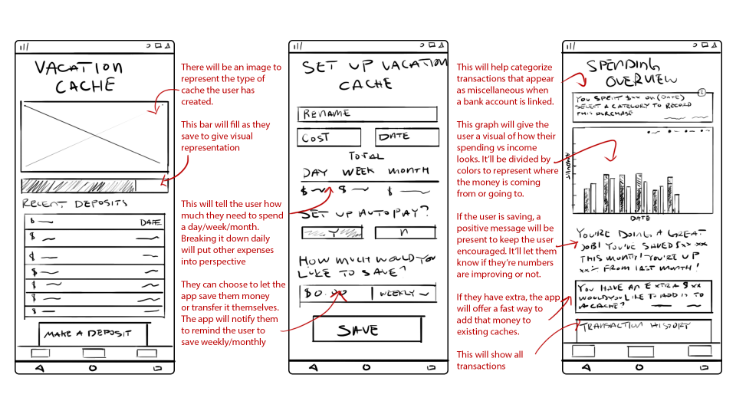 VACATION
CACHE
RECENT DEPOSITS
$
DATE
$
$
$
$
$
$
MAKE A DEPOSIT
There will be an image to
represent the type of
cache the user has
created.
This bar will fill as they
save to give visual
representation
This will tell the user how
much they need to spend
a day/week/month.
Breaking it down daily
will put other expenses
into perspective
They can choose to let the
app save them money
or transfer it themselves.
The app will notify them
to remind the user to
save weekly/monthly
SET UP VACATION
CACHE
RENAME
COST
DATE
TOTAL
DAY WEEK MONTH
$ $ $
SET UP AUTOPAY?
Y
N
HOW MUCH WOULD YOU
LIKE TO SAVE?
$0.00
WEEKLY
SAVE
This will help categorize
transactions that appear
as miscellaneous when
a bank account is linked.
This graph will give the
user a visual of how their
spending vs income
looks. It'll be divided by
colors to represent where
the money is coming
from or going to.
If the user is saving, a
positive message will be
present to keep the user
encouraged. It'll let them
know if they're numbers
are improving or not.
If they have extra, the app
will offer a fast way to
add that money to
existing caches.
This will show all
transactions
SPENDING
OVERVIEW
YOU SPENT $xx ON (DATE)
SELECT A CATEGORY TO RECORD
THIS PURCHASE
DATE
YOU'RE DOING A GREAT
JOB! YOU'VE SAVED $xx xx
THIS MONTH! YOU'RE UP
FROM LAST MONTH!
YOU HAVE AN EXTRA $xx
WOULD YOU LIKE TO ADD IT TO
A CACHE?
TRANSACTION HISTORY